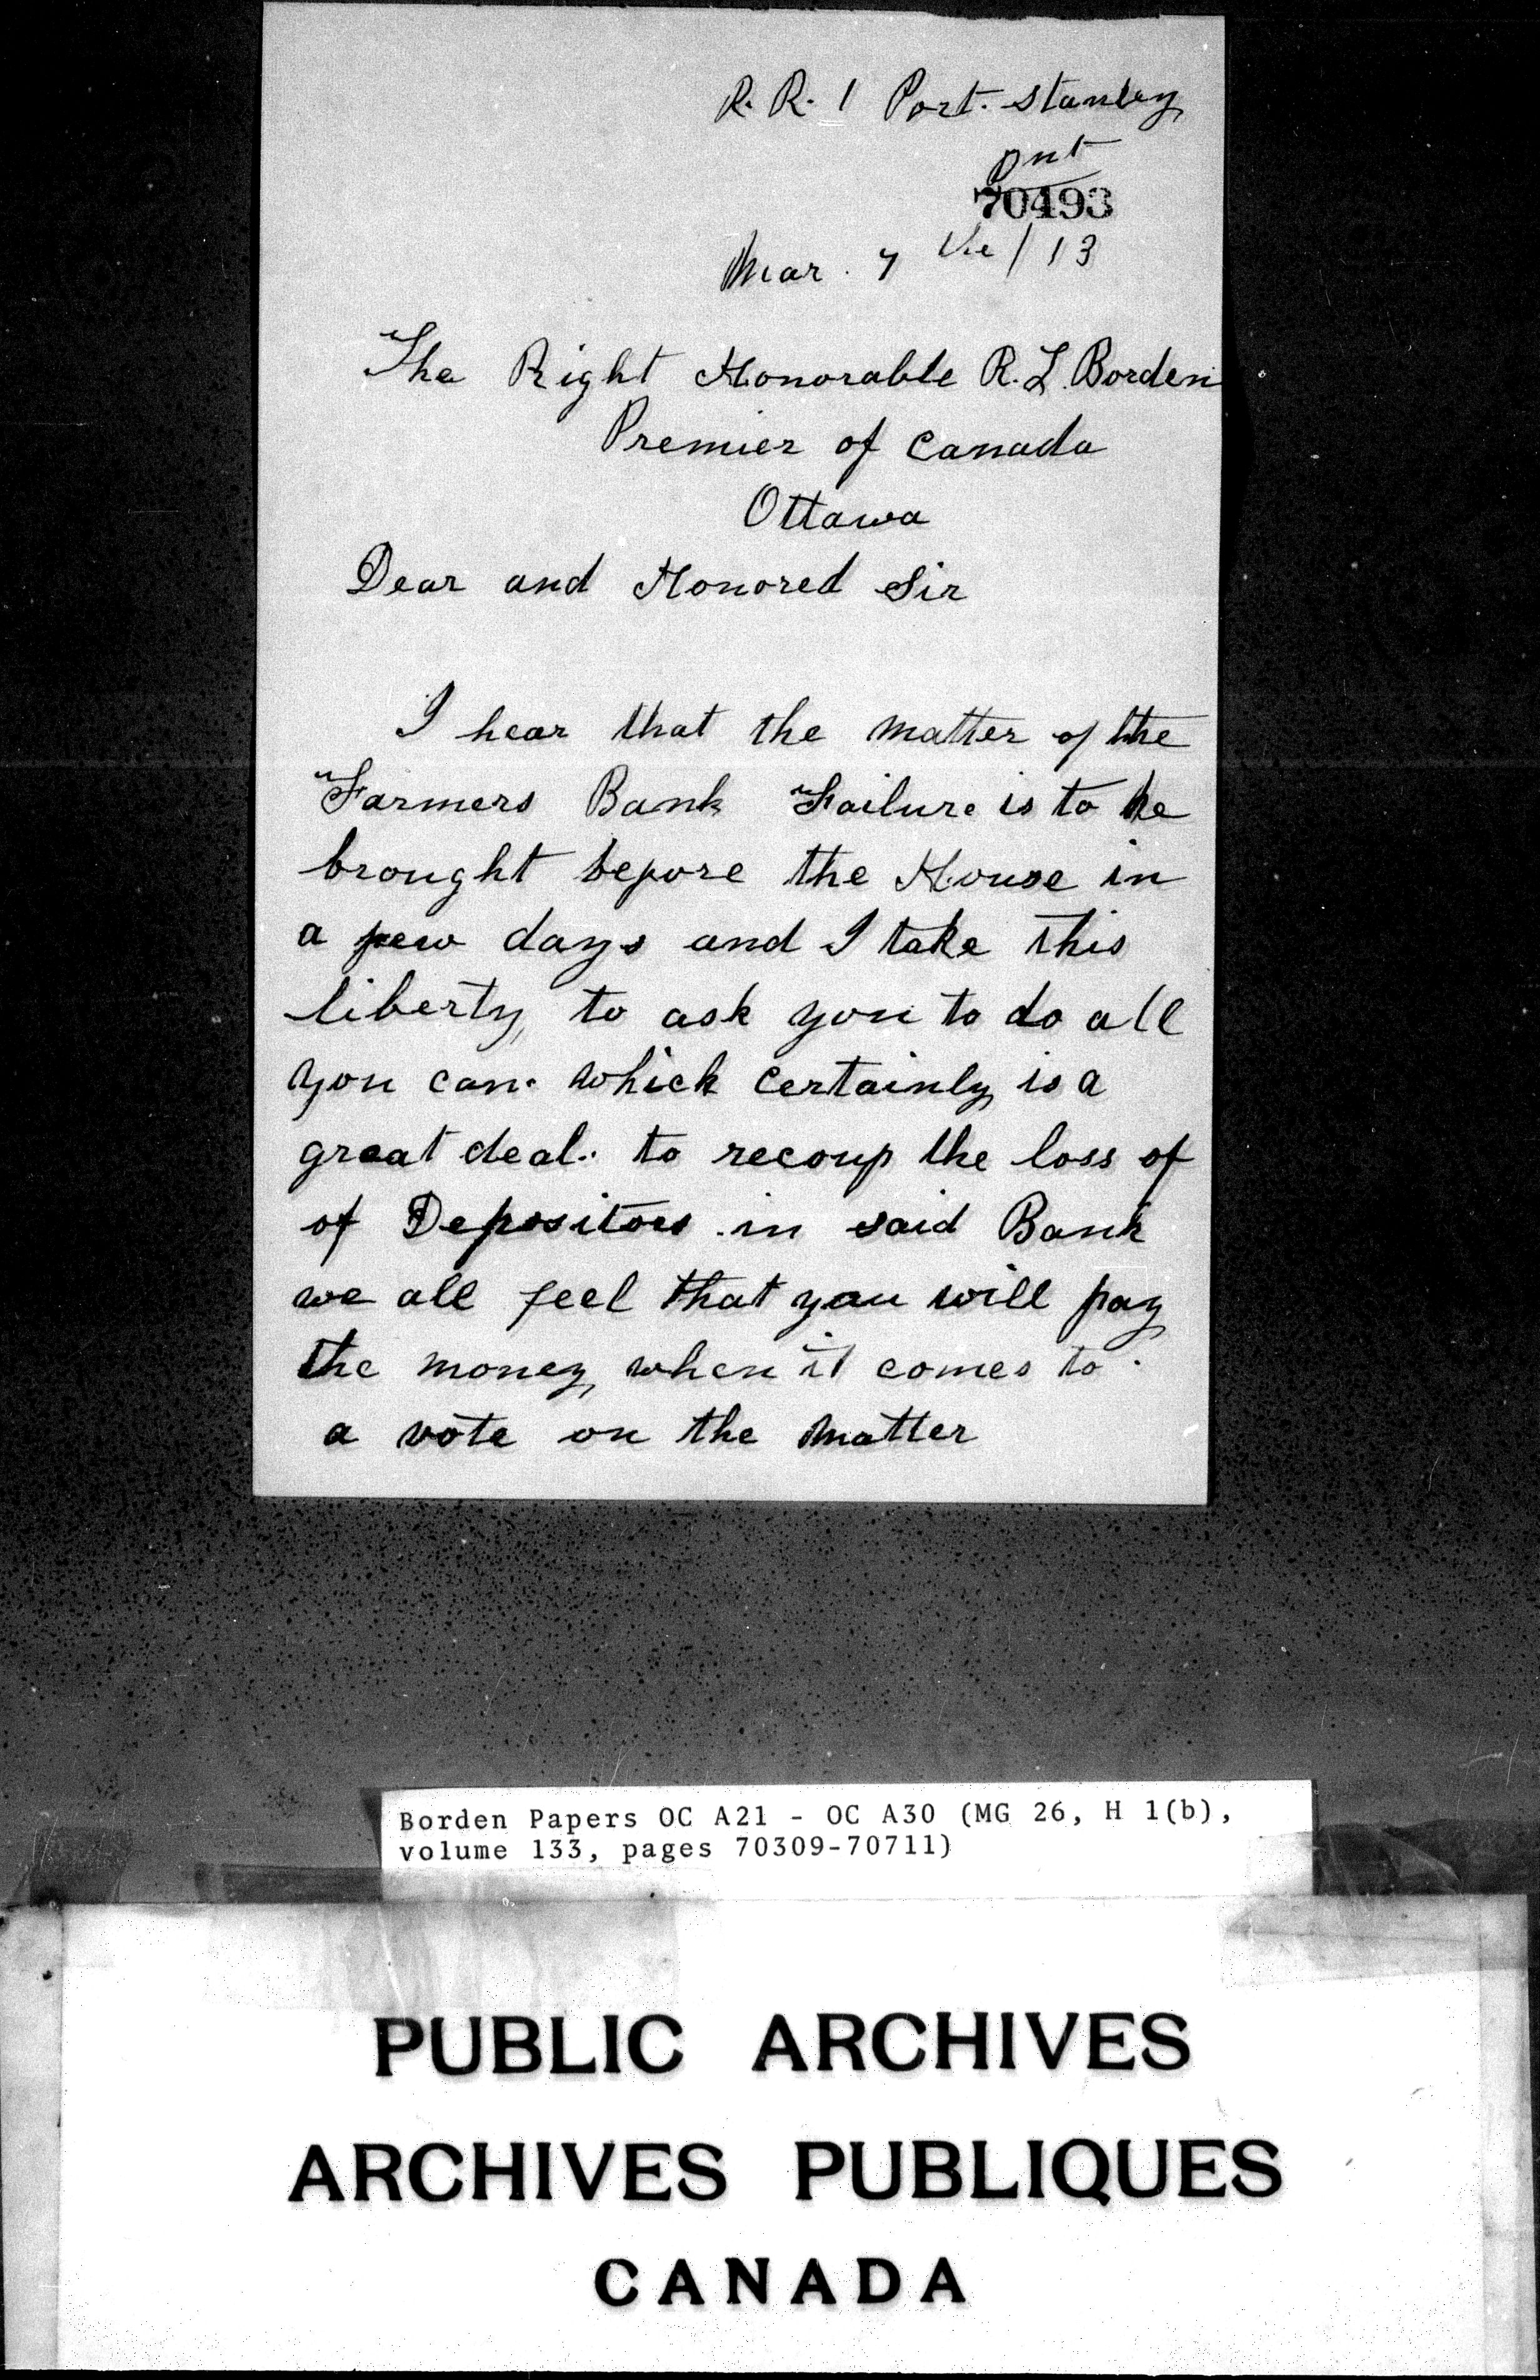 R. R. 1 Port. Stanley
Ont
70493
Mar. 7 the/13
The Right Honorable R. L. Borden
Premier of Canada
Ottawa
Dear and Honored Sir
I hear that the matter of the
Farmers Bank Failure is to be
brought before the House in
a few days and I take this
liberty to ask you to do all
you can. which certainly is a
great deal. to recoup the loss of
of Depositors in said Bank
we all feel that you will pay
the money when it comes to
a vote on the matter
Borden Papers OC A21 - OC A30 (MG 26, H 1(b),
volume 133, pages 70309-70711)
PUBLIC ARCHIVES
ARCHIVES PUBLIQUES
CANADA